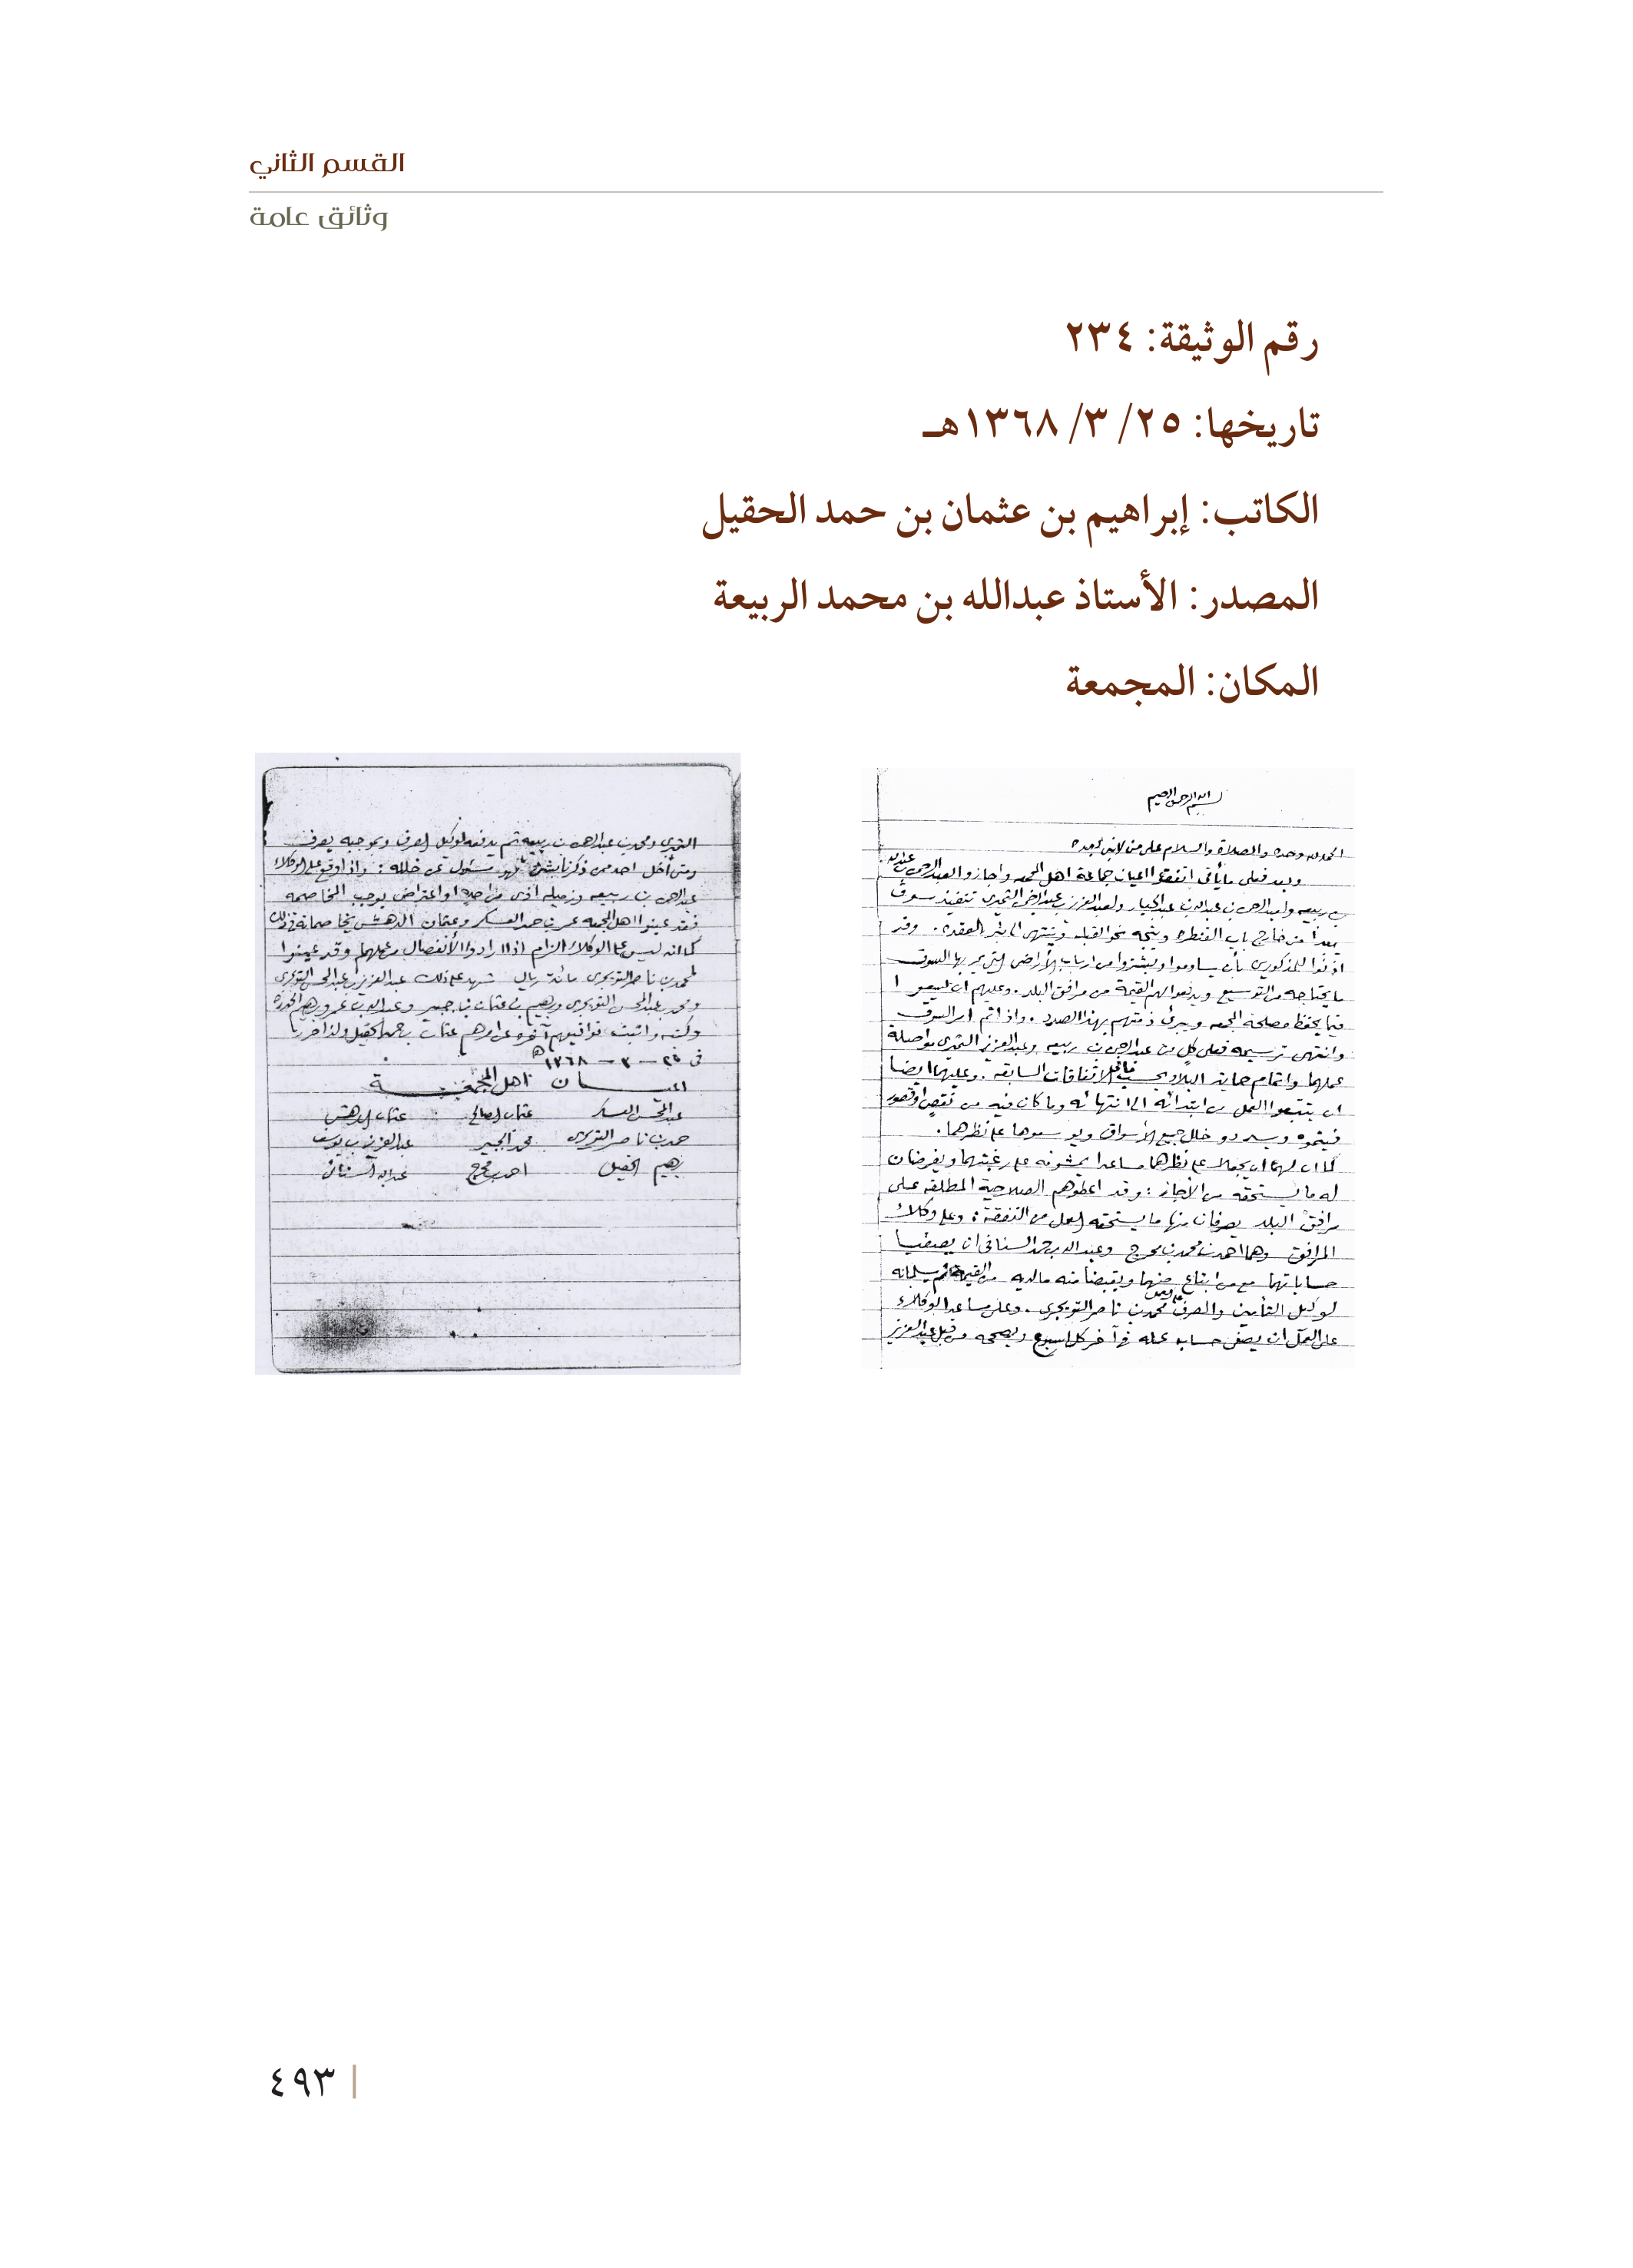 القسم الثاني
وثائق عامة
رقم الوثيقة: ٢٣٤
تاريخها: ٢٥/ ٣/ ١٣٦٨هـ
الكاتب: إبراهيم بن عثمان بن حمد الحقيل
المصدر: الأستاذ عبدالله بن محمد الربيعة
المكان: المجمعة
بسم الله الرحمن الرحيم
الحمد لله وحده والصلاة والسلام على من لا نبي بعده
وبعد فعلى ما يأتي اتفقوا اعيان جماعة اهل المجمعه واجازوا لعبدالرحمن بن عبدالله
بن ربيعه ولعبدالرحمن بن عبدالله بن عبدالجبار ولعبدالعزيز بن عبدالرحمن الثميري تنفيذ سوق
يبدأ من خارج باب القنطره ويتجه نحو القبله وينتهي الى بئر العقده. وقد
اذنوا للمذكورين بأن يساوموا ويشتروا من ارباب الأراضي التي يمر بها السوق
ما يحتاجه من التوسيع ويدفعوا لهم القيمة من مرافق البلد. وعليهم ان يسعوا
فيما يحفظ مصلحة المجمعه ويبرئ ذمتهم بهذا الصدد. واذا تم امر السوق
وانتهى ترسيمه فعلى كلٍ من عبدالرحمن بن ربيعه وعبدالعزيز الثميري مواصلة
عملهما واتمام حماية البلاد بحسب ما في الاتفاقات السابقه. وعليهما ايضا
ان يتتبعوا العمل من ابتدائه الى انتهائه وما كان فيه من نقص او قصور
فيتموه ويسددو خلل جميع الأسواق ويوسعوها على نظرهما.
كما ان لهما ان يجعلا على نظرهما مساعدا يمشونه على رغبتهما ويفرضان
له ما يستحقه من الأجار: وقد اعطوهم الصلاحية المطلقه على
مرافق البلد يصرفان منها ما يستحقه العمل من النفقة: وعلى وكلاء
المرافق وهما احمد بن محمد بن محرج وعبدالله بن حمد السناني ان يصفيا
حساباتهما مع من ابتاع منها ويقبضا منه مالديه من القيمة ثم يسلمانه
لوكيل التأمين والصرف محمد بن ناصر التويجري. وعلى مساعد الوكلاء
على العمل ان يصفي حساب عمله في آخر كل اسبوع ويصححه من قبل عبدالعزيز
الثميري ومحمد بن عبدالرحمن بن ربيعه ثم يدفعه لوكيل الصرف وبموجبه يصرف
ومتى أخل احد ممن ذكرنا بشيء فهو مسئول عن خلله: واذا وقع على الوكلاء
عبدالرحمن بن ربيعه وزميله اذى من احدٍ او اعتراض يوجب المخاصمه
فقد عينوا اهل المجمعه عمر بن حمد العسكر وعثمان الدهش يخاصمانه في ذلك
كما انه ليس على الوكلاء الزام اذا ارادوا الأنفصال من عملهما وقد عينوا
لمحمد بن ناصر التويجري مائة ريال شهد على ذلك عبدالعزيز بن عبدالمحسن التويجري
ومحمد بن عبدالمحسن التويجري وبرهيم بن عثمان بن جبير وعبدالله بن عمر وبرهيم
وكتبه واثبت تواقيعهم آخره ابراهيم بن عثمان بن حمد الحقيل ولذا حرر
في ٢٥ – ٣ – ١٣٦٨ هـ
اعيـــان اهل المجمعـــة
عبدالمحسن العسكر عثمان الصالح عثمان الدهش
حمد بن ناصر التويجري محمد الجبير عبدالعزيز بن يوسف
برهيم الحقيل احمد بن محرج عبدالله السناني
٤٩٣